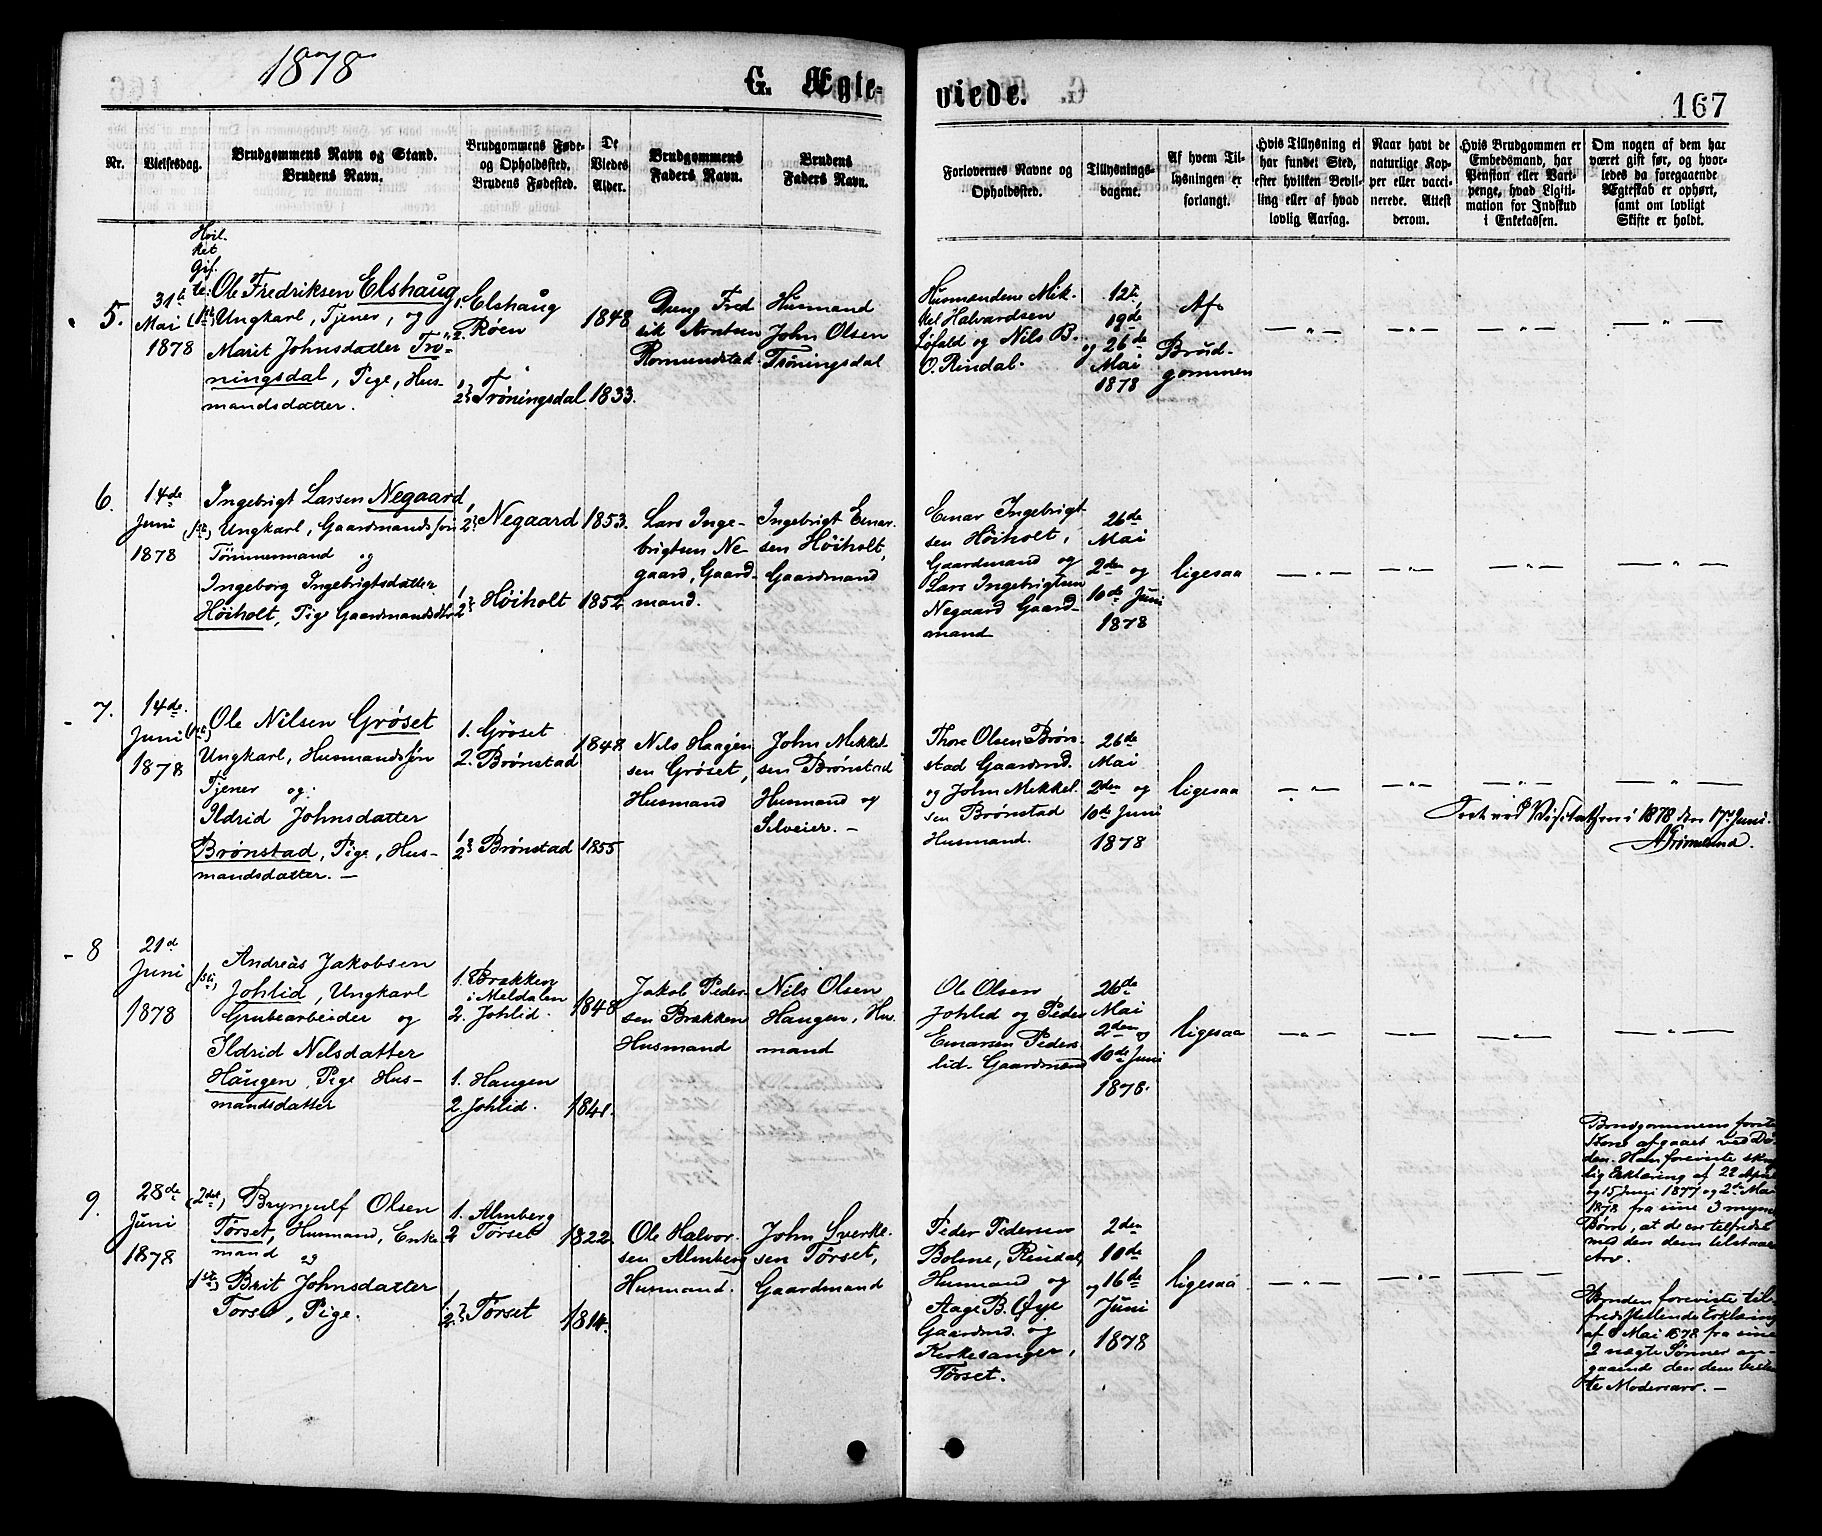 1878
G. Ægte-
viede.
167
Nr.
Vielsesdag.
Brudgommens Navn og Stand.
Brudens Navn.
Brudgommens Føde-
og Opholdssted.
Brudens Fødested.
De
Viedes
Alder.
Brudgommens
Faders Navn.
Brudens
Faders Navn.
Forlovernes Navne og
Opholdssted.
Tillysnings-
dagene.
Af hvem Til-
lysningen er
forlangt.
Hvis Tillysning ei
har fundet Sted,
efter hvilken Bevil-
ling eller af hvad
lovlig Aarsag.
Naar havt de
naturlige Kop-
per eller vacci-
nerede. Attest
derom.
Hvis Brudgommen er
Embedsmand, har
Pension eller Vart-
penge, hvad Ligiti-
mation for Indskud
i Enkekassen.
Om nogen af dem har
været gift før, og hvor-
ledes da foregaaende
Ægteskab er ophørt,
samt om lovligt
Skifte er holdt.
Hvil-
ket
Gif-
te:
5.
31te
Mai
1878
(1ste)
Ole Fredriksen Elshaug,
Ungkarl, Tjener, og
Marit Johnsdatter Trø-
ningsdal, Pige, Hus-
mandsdatter.
1. Elshaug
2. Røen
1. og
2. Trøningsdal
1848
1833.
Dreng Fred
rik Arntsen
Romundstad
Husmand
John Olsen
Trøningsdal
Husmændene Mik-
kel Halvardsen
Løfald og Nils B.
O. Rindal.
12te,
19de
og 26de
Mai
1878
Af
Brud-
gommen
— " —
— " —
— " —
— " —
6.
14de
Juni
1878
(1ste)
Ingebrigt Larsen Negaard,
Ungkarl, Gaardmandssøn
Tømmermand og
Ingeborg Ingebrigtsdatter
Høiholt, Pige Gaardmandsdtr
2. Negaard
1.
2. Høiholt
1853.
1852
Lars Inge-
brigtsen Ne-
gaard, Gaard-
mand.
Ingebrigt Einar-
sen Høiholt,
Gaardmand
Einar Ingebrigt-
sen Høiholt,
Gaardmand og
Lars Ingebrigtsen
Negaard Gaard-
mand
26de
Mai
2den og
10de Juni
1878
ligesaa
— " —
— " —
— " —
— " —
7.
14de
Juni
1878
(1ste)
Ole Nilsen Grøset
Ungkarl, Husmandssøn
Tjener og:
Ildrid Johnsdatter
Brønstad, Pige, Hus-
mandsdatter. —
1. Grøset
2. Brønstad
1.
2. Brønstad
1848.
1855
Nils Haagen-
sen Grøset,
Husmand
John Mikkel-
sen Brønstad
Husmand og
Selveier. —
Thore Olsen Brøn-
stad Gaardmd.
og John Mikkel-
sen Brønstad
Husmand.
26de
Mai
2den og
10de Juni
1878
ligesaa
— " —
— " —
— " —
— " —
Seet ved Visitatsen i 1878 den 17de Juni.
A Grimelund.
8
21de
Juni
1878
(1ste)
Andreas Jakobsen
Johlid, Ungkarl
Grubearbeider og
Ildrid Nilsdatter
Haugen, Pige Hus-
mandsdatter
1. Brækken
i Meldalen
2. Johlid.
1. Haugen
2. Johlid.
1848
1841.
Jakob Peder-
sen Brækken
Husmand
Nils Olsen
Haugen, Hus-
mand
Ole Olsen
Johlid og Peder
Einarsen Peders-
lid. Gaardmænd
26de
Mai
2den og
10de Juni
1878.
ligesaa
— " —
— " —
— " —
— " —
9.
28de
Juni
1878
(2det)
Bryngulf Olsen
Tørset, Husmand, Enke-
mand og
(1ste) Brit Johnsdatter
Tørset, Pige.
1. Almberg
2 Tørset
1.
2. Tørset
1822.
1814.
Ole Halvor-
sen Almberg
Husmand.
John Sverke-
sen Tørset,
Gaardmand
Peder Pedersen
Bolme, Rindal,
Husmand og
Aage B. Øye
Gaardmd. og
Kirkesanger,
Tørset.
2den
10de
og 16de
Juni
1878
ligesaa
— " —
— " —
— " —
Brudgommens første
Kone afgaaet ved Dø-
den. Han foreviste skrift-
lig Erklæring af 22 April
og 15 Juni 1877 og 2de Mai
1878 fra sine 3 myndige
Børn, at de er tilfredse
med den dem tilstaaede
Arv.
Bruden foreviste til-
fredsstillende Erklæring
af 8 Mai 1878 fra sine
2 uægte Sønner an-
gaaende den dem
Mødrearv. —